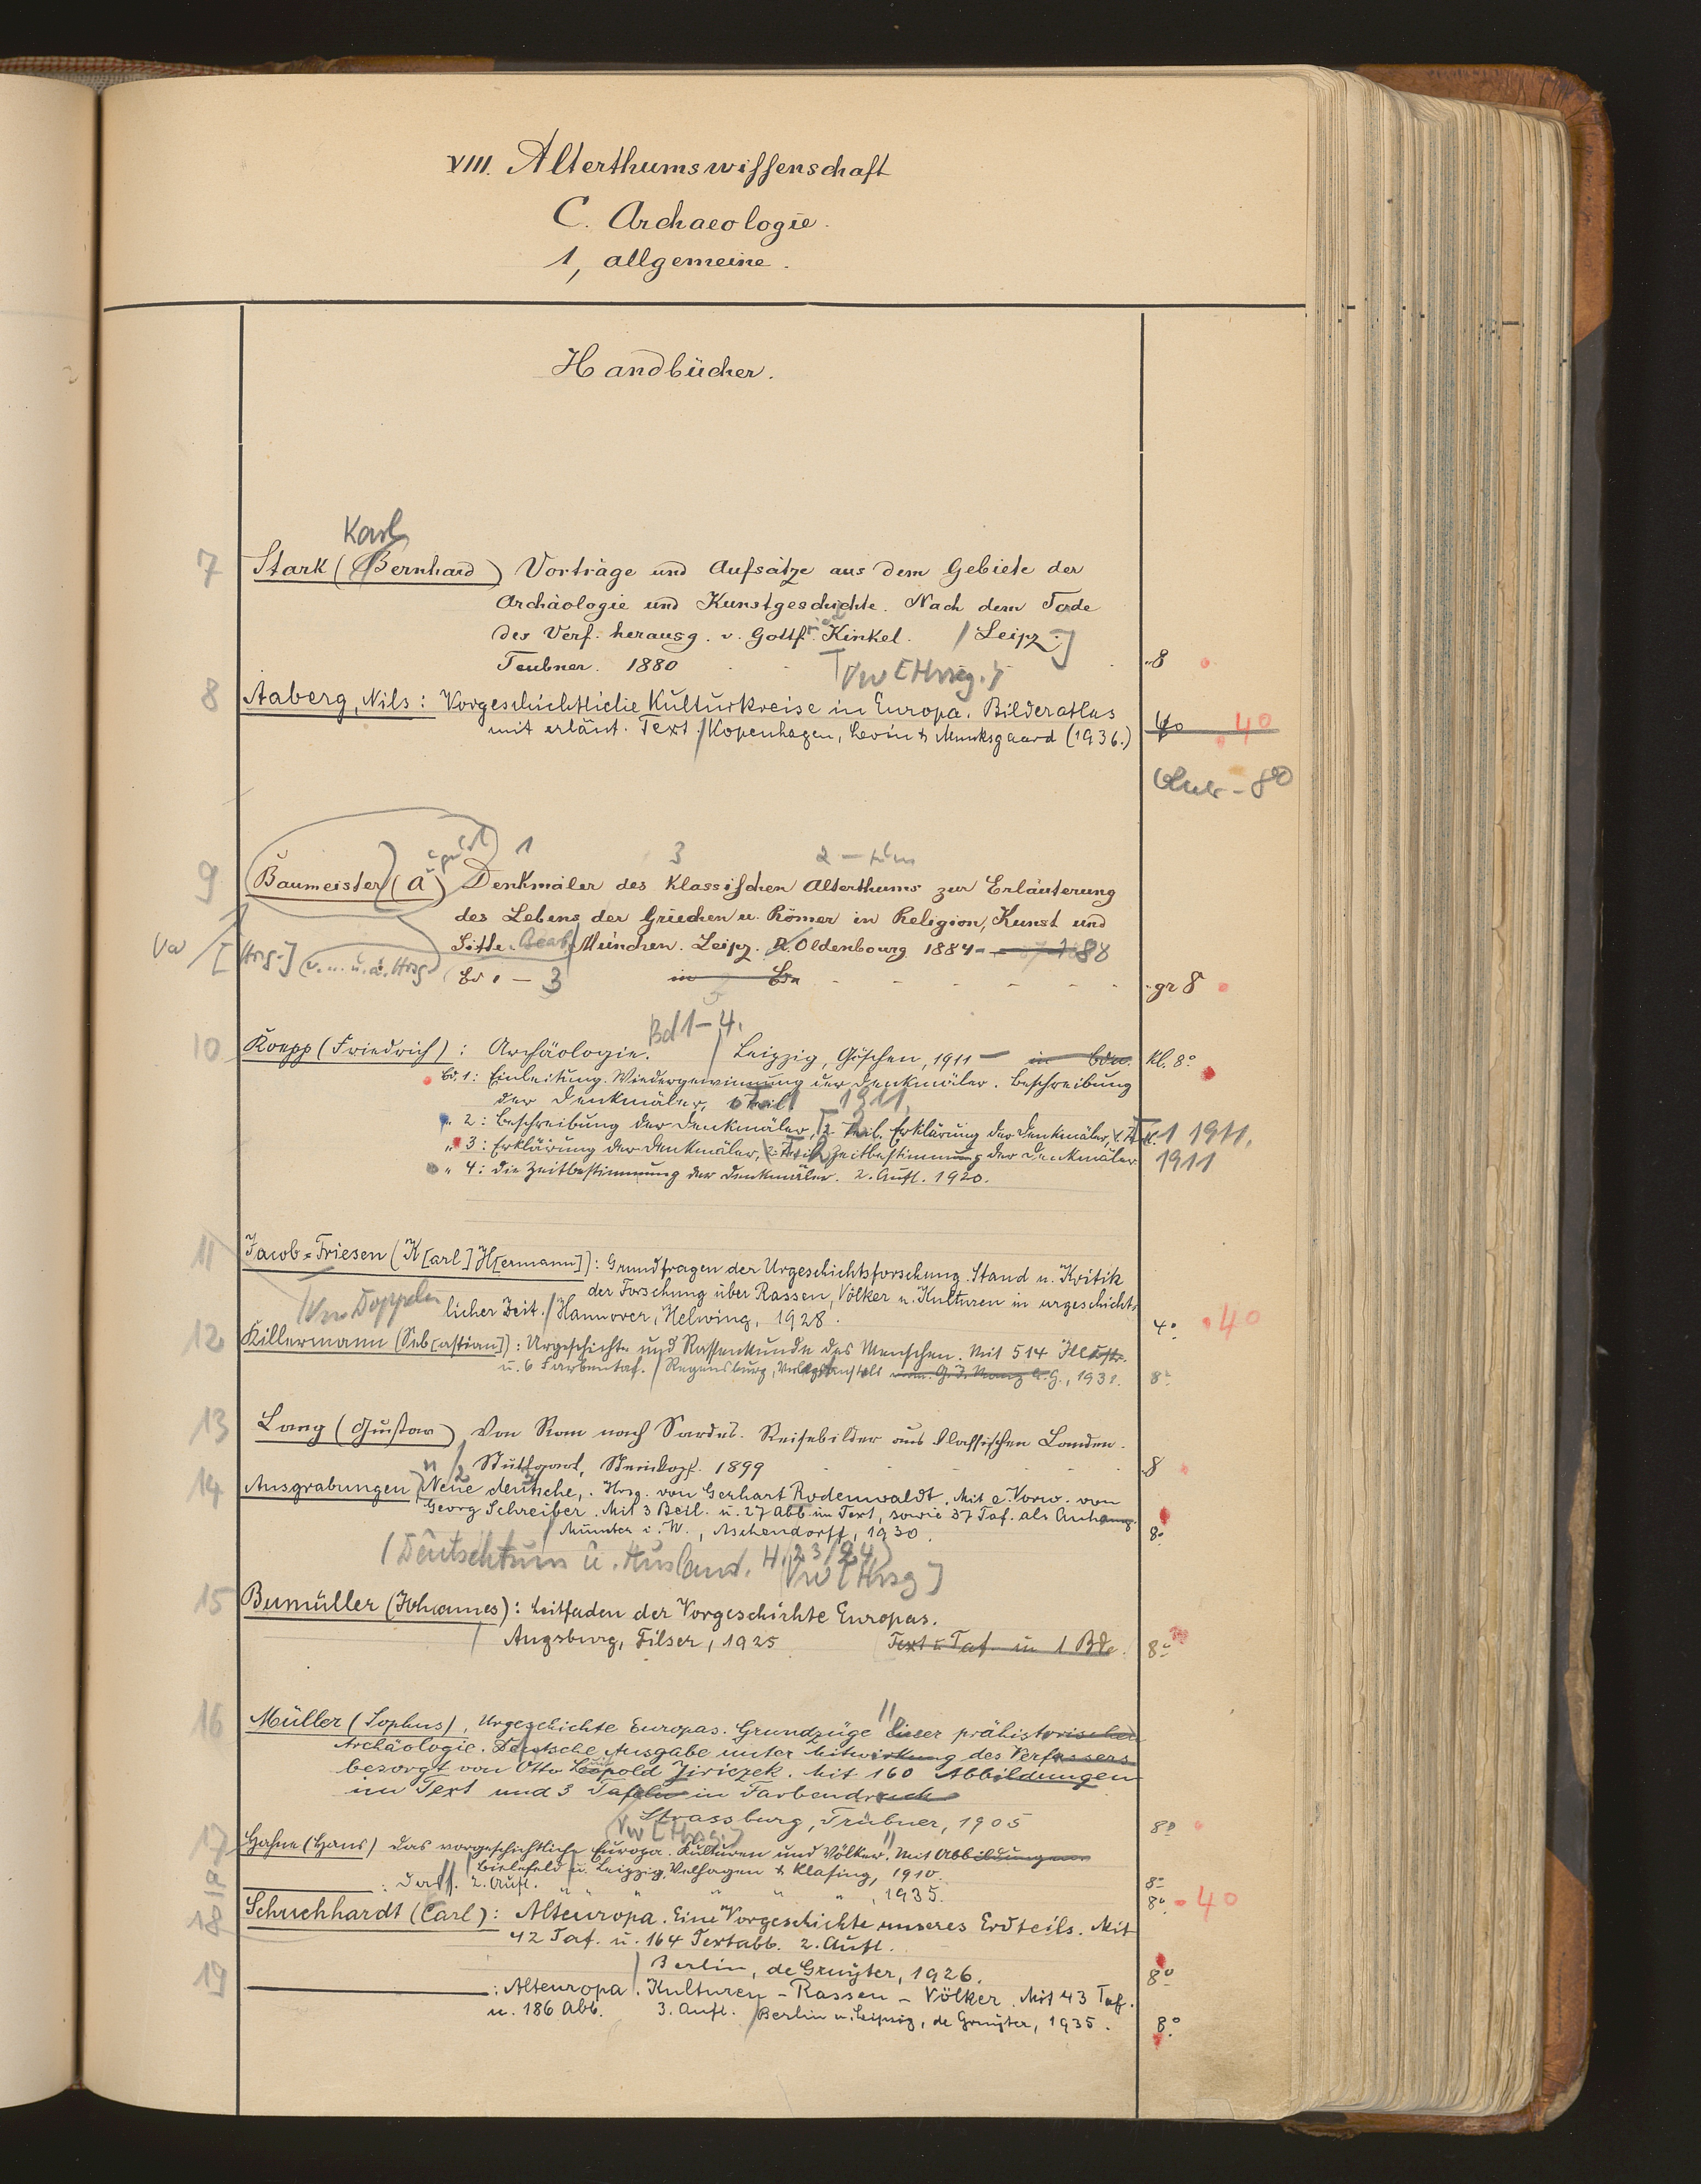 VIII. Alterthumswissenschaft
C. Archaeologie.
1, allgemeine.
Handbücher.
Karl
7 Stark (Bernhard) Vorträge und Aufsätze aus dem Gebiete der
Archäologie und Kunstgeschichte. Nach dem Tode
des Verf. herausg. v. Gottfr. Kinkel. / Leipz.
Teubner. 1880 8
Vw [Hrsg.]
8 Aaberg, Nils: Vorgeschichtliche Kulturkreise in Europa. Bilderatlas
mit erläut. Text. / Kopenhagen, Levin & Munksgaard (1936.) 4o 40
8o
1 3 2
9 Baumeister (A) Denkmäler des Klassischen Alterthums zur Erläuterung
des Lebens der Griechen u. Römer in Religion, Kunst und
Sitte. / München. Leipz. R. Oldenbourg 1884 - 88
Vw [Hrsg.] Bd 1 - 3 in Bdn gr 8
Bd 1-4.
10 Koepp (Friedrich): Archäologie. / Leipzig, Göschen, 1911 - in Bdn. Kl. 8°
Bd. 1: Einleitung. Wiedergewinnung der Denkmäler. Beschreibung
der Denkmäler, Teil 1 1911.
" 2: Beschreibung der Denkmäler, 2. Teil. Erklärung der Denkmäler, 1 1911.
" 3: Erklärung der Denkmäler, Zeitbestimmung der Denkmäler 1911
" 4: Die Zeitbestimmung der Denkmäler. 2. Aufl. 1920.
11 Jacob-Friesen (K[arl] H[ermann]): Grundfragen der Urgeschichtsforschung. Stand u. Kritik
der Forschung über Rassen, Völker u. Kulturen in urgeschicht-
licher Zeit. / Hannover, Helwing, 1928. 4° 40
12 Killermann (Seb[astian]): Urgeschichte und Rassenkunde des Menschen. Mit 514 Illustr.
u. 6 Farbentaf. / Regensburg, Verlagsanstalt vorm. G. J. Manz A.G., 1931. 8°
13 Lang (Gustav) Von Rom nach Sardes. Reisebilder aus klassischen Landen.
Stuttgart, Steinkopf. 1899 8
14 Ausgrabungen, Neue deutsche,. Hrsg. von Gerhart Rodenwaldt. Mit e. Vorw. von
Georg Schreiber. Mit 3 Beil. u. 27 Abb. im Text, sowie 37 Taf. als Anhang.
/ Münster i. W., Aschendorff, 1930. 8°
(Deutschtum u. Ausland. H. 23/24) Vw [Hrsg]
15 Bumüller (Johannes): Leitfaden der Vorgeschichte Europas.
/ Augsburg, Filser, 1925 Text u. Taf. in 1 Bde. 8°
16 Müller (Sophus), Urgeschichte Europas. Grundzüge einer prähistorischen
Archäologie. Deutsche Ausgabe unter Mitwirkung des Verfassers
besorgt von Otto Luitpold Jiriczek. Mit 160 Abbildungen
im Text und 3 Tafeln in Farbendruck
Strassburg, Trübner, 1905 8°
Vw [Hrsg.]
17 Hahne (Hans) Das vorgeschichtliche Europa. Kulturen und Völker. Mit Abbildungen
Bielefeld u. Leipzig, Velhagen & Klasing, 1910. 8°
: Dass. 2. Aufl. " " " " " " , 1935. 8° 40
18 Schuchhardt (Carl): Alteuropa. Eine Vorgeschichte unseres Erdteils. Mit
42 Taf. u. 164 Textabb. 2. Aufl.
/ Berlin, de Gruyter, 1926. 8°
19 : Alteuropa. Kulturen - Rassen - Völker. Mit 43 Taf.
u. 186 Abb. 3. Aufl. / Berlin u. Leipzig, de Gruyter, 1935. 8°